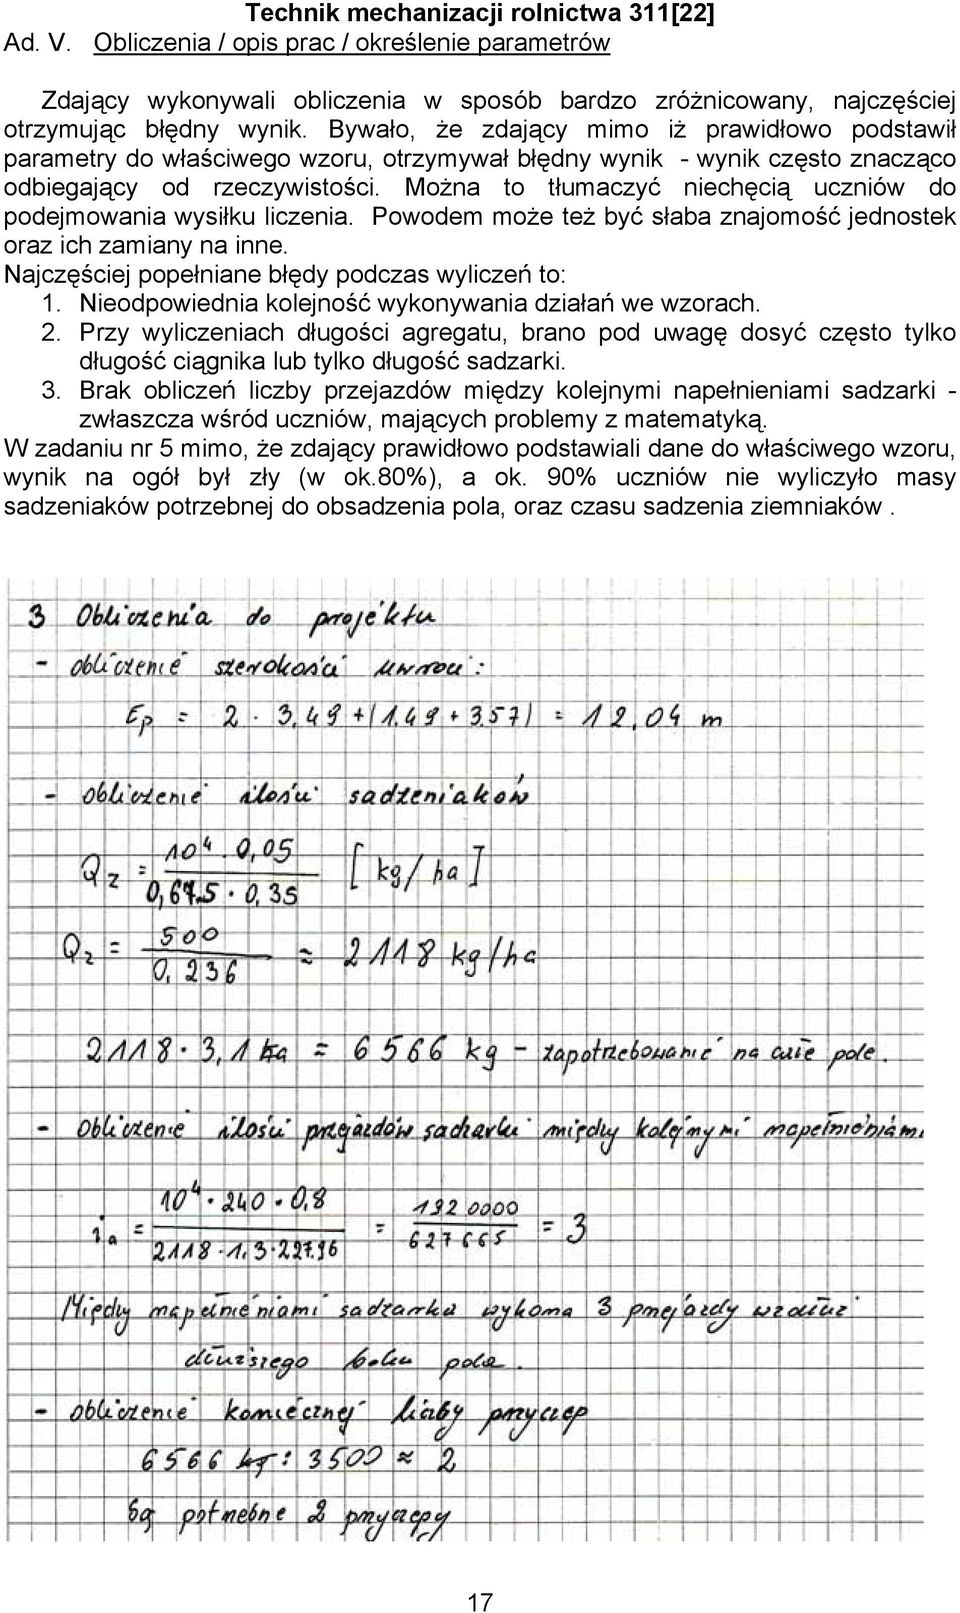 Technik mechanizacji rolnictwa 311[22]
Ad. V. Obliczenia / opis prac / określenie parametrów
Zdający wykonywali obliczenia w sposób bardzo zróżnicowany, najczęściej
otrzymując błędny wynik. Bywało, że zdający mimo iż prawidłowo podstawił
parametry do właściwego wzoru, otrzymywał błędny wynik - wynik często znacząco
odbiegający od rzeczywistości. Można to tłumaczyć niechęcią uczniów do
podejmowania wysiłku liczenia. Powodem może też być słaba znajomość jednostek
oraz ich zamiany na inne.
Najczęściej popełniane błędy podczas wyliczeń to:
1. Nieodpowiednia kolejność wykonywania działań we wzorach.
2. Przy wyliczeniach długości agregatu, brano pod uwagę dosyć często tylko
długość ciągnika lub tylko długość sadzarki.
3. Brak obliczeń liczby przejazdów między kolejnymi napełnieniami sadzarki -
zwłaszcza wśród uczniów, mających problemy z matematyką.
W zadaniu nr 5 mimo, że zdający prawidłowo podstawiali dane do właściwego wzoru,
wynik na ogół był zły (w ok.80%), a ok. 90% uczniów nie wyliczyło masy
sadzeniaków potrzebnej do obsadzenia pola, oraz czasu sadzenia ziemniaków .
3 Obliczenia do projektu
- obliczenie szerokości uwroci:
Ep = 2 · 3,49 + (1,49 + 3,57) = 12,04 m
- obliczenie ilości sadzeniaków
Qz = 10⁴ · 0,05 / 0,675 · 0,35 [kg/ha]
Qz = 500 / 0,236 ≈ 2118 kg/ha
2118 · 3,1 ha = 6566 kg - zapotrzebowanie na całe pole.
- Obliczenie ilości przejazdów sadzarki między kolejnymi napełnieniami
ia = 10⁴ · 240 · 0,8 / 2118 · 1,3 · 227,96 = 1920000 / 627665 = 3
Między napełnieniami sadzarka wykona 3 przejazdy wzdłuż
dłuższego boku pola.
- obliczenie koniecznej liczby przyczep
6566 kg : 3500 ≈ 2
Są potrzebne 2 przyczepy
17